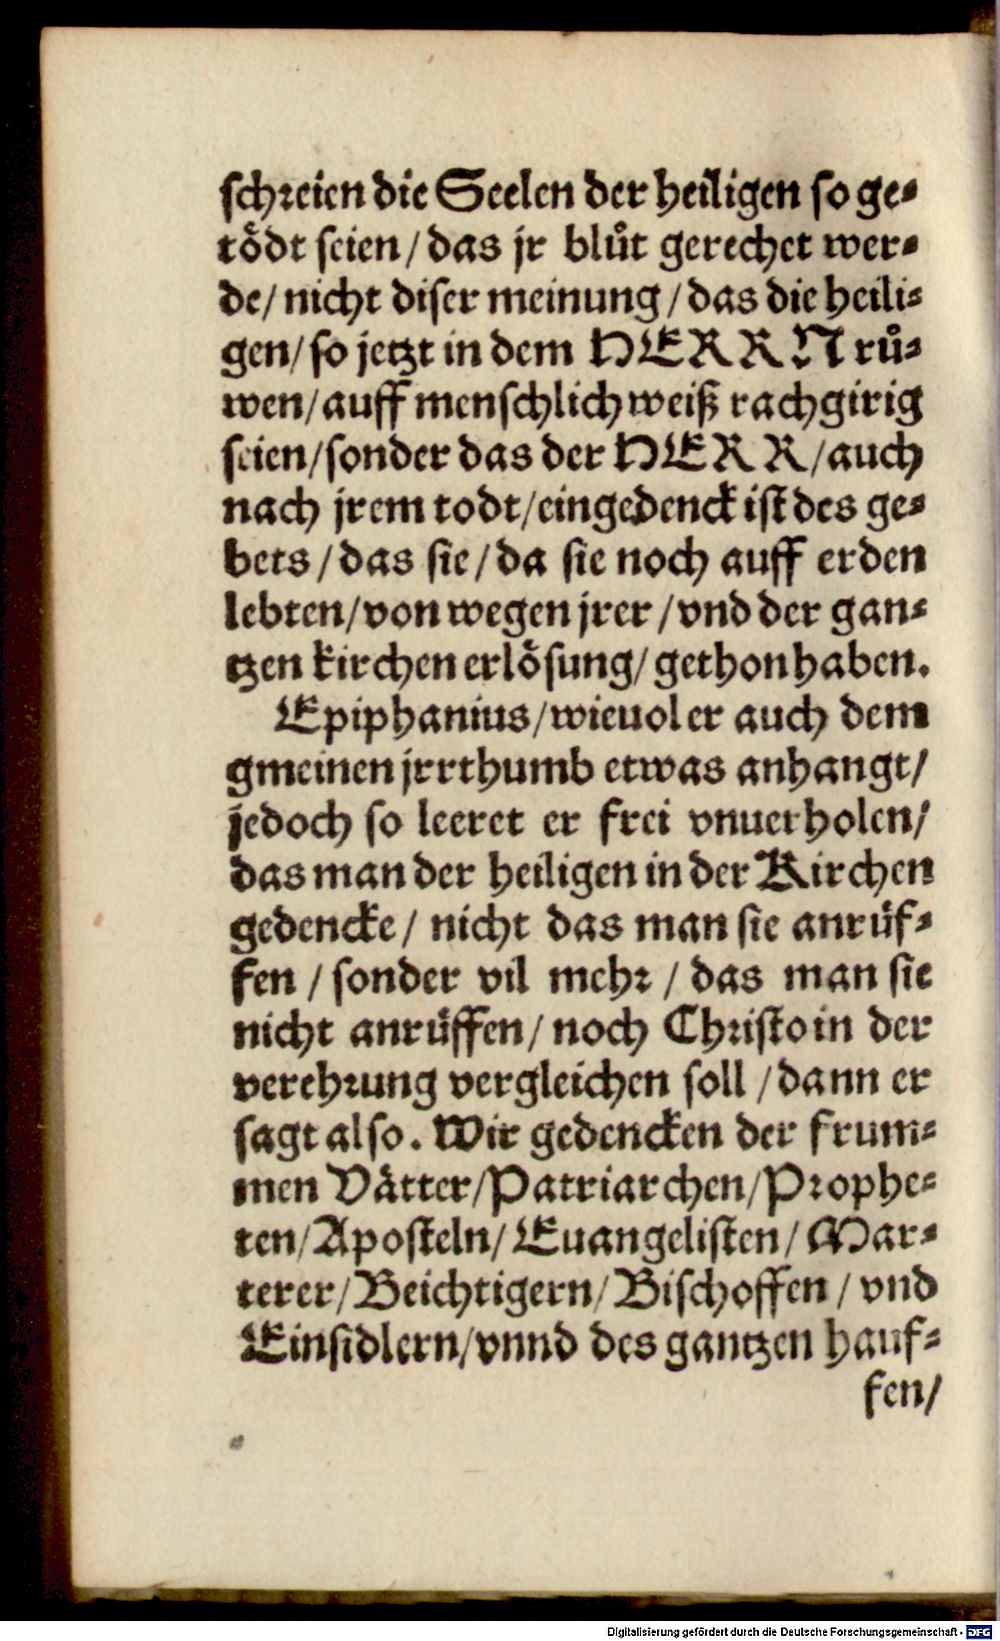 schreien die Seelen der heiligen so ge⸗
tödt seien/ das jr blůt gerechet wer⸗
de/ nicht diser meinung/ das die heili⸗
gen/ so jetzt in dem HERRN rů⸗
wen/ auff menschlich weiß rachgirig
seien/ sonder das der HERR/ auch
nach jrem todt/ eingedenck ist des ge⸗
bets/ das sie/ da sie noch auff erden
lebten/ von wegen jrer/ vnd der gan⸗
tzen kirchen erlösung/ gethon haben.
Epiphanius/ wieuol er auch dem
gmeinen jrrthumb etwas anhangt/
jedoch so leeret er frei vnuerholen/
das man der heiligen in der Kirchen
gedencke/ nicht das man sie anrüf⸗
fen/ sonder vil mehr/ das man sie
nicht anrüffen/ noch Christo in der
verehrung vergleichen soll/ dann er
sagt also. Wir gedencken der frum⸗
men Vätter/ Patriarchen/ Prophe⸗
ten/ Aposteln/ Euangelisten/ Mar⸗
terer/ Beichtigern/ Bischoffen/ vnd
Einsidlern/ vnnd des gantzen hauf⸗
fen/
Digitalisierung gefördert durch die Deutsche Forschungsgemeinschaft - DFG